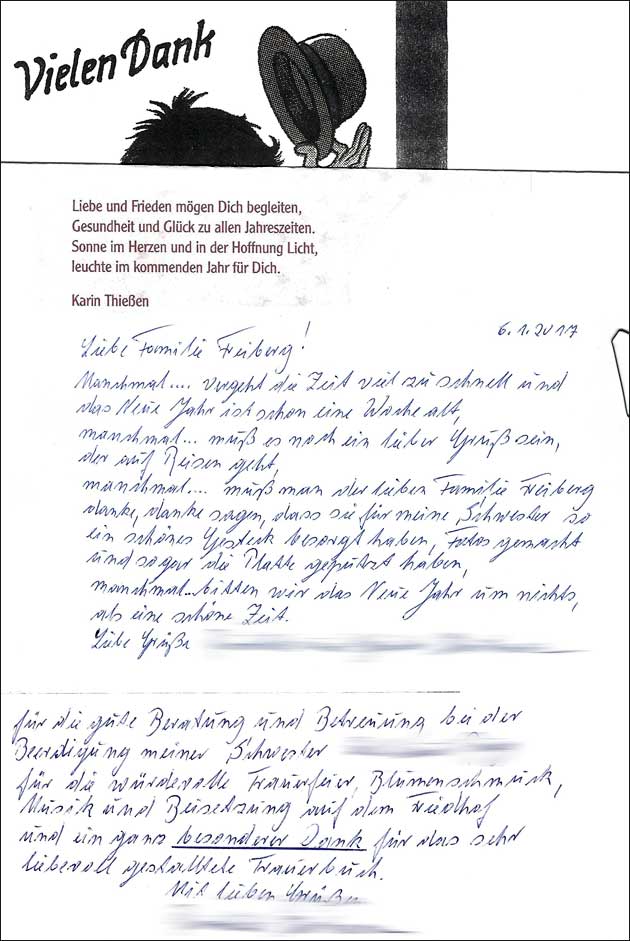 Vielen Dank
Liebe und Frieden mögen Dich begleiten,
Gesundheit und Glück zu allen Jahreszeiten.
Sonne im Herzen und in der Hoffnung Licht,
leuchte im kommenden Jahr für Dich.
Karin Thießen
6.1.2017
Liebe Familie Freiberg!
Manchmal.... vergeht die Zeit viel zu schnell und
das Neue Jahr ist schon eine Woche alt,
manchmal... muß es noch ein lieber Gruß sein,
der auf Reisen geht,
manchmal.... muß man der lieben Familie Freiberg
danke, danke sagen, dass sie für meine Schwester so
ein schönes Gesteck besorgt haben, Fotos gemacht
und sogar die Platte geputzt haben,
manchmal... bitten wir das Neue Jahr um nichts,
als eine schöne Zeit.
Liebe Grüße
für die gute Beratung und Betreuung bei der
Beerdigung meiner Schwester
für die würdevolle Trauerfeier, Blumenschmuck,
Musik und Beisetzung auf dem Friedhof
und ein ganz besonderer Dank für das sehr
liebevoll gestaltete Trauerbuch.
Mit lieben Grüßen